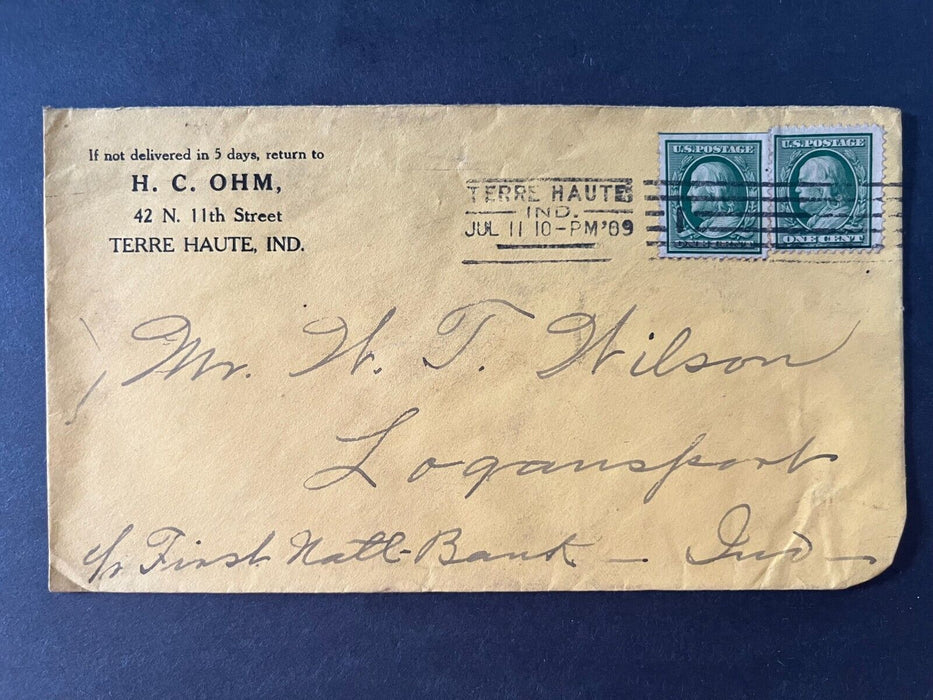 If not delivered in 5 days, return to
H. C. OHM,
42 N. 11th Street
TERRE HAUTE, IND.
TERRE HAUTE
IND.
JUL 11 10-PM '09
U.S. POSTAGE
ONE CENT
U.S. POSTAGE
ONE CENT
1
Mr. W. T. Wilson
Logansport
c/o First Natl Bank — Ind —